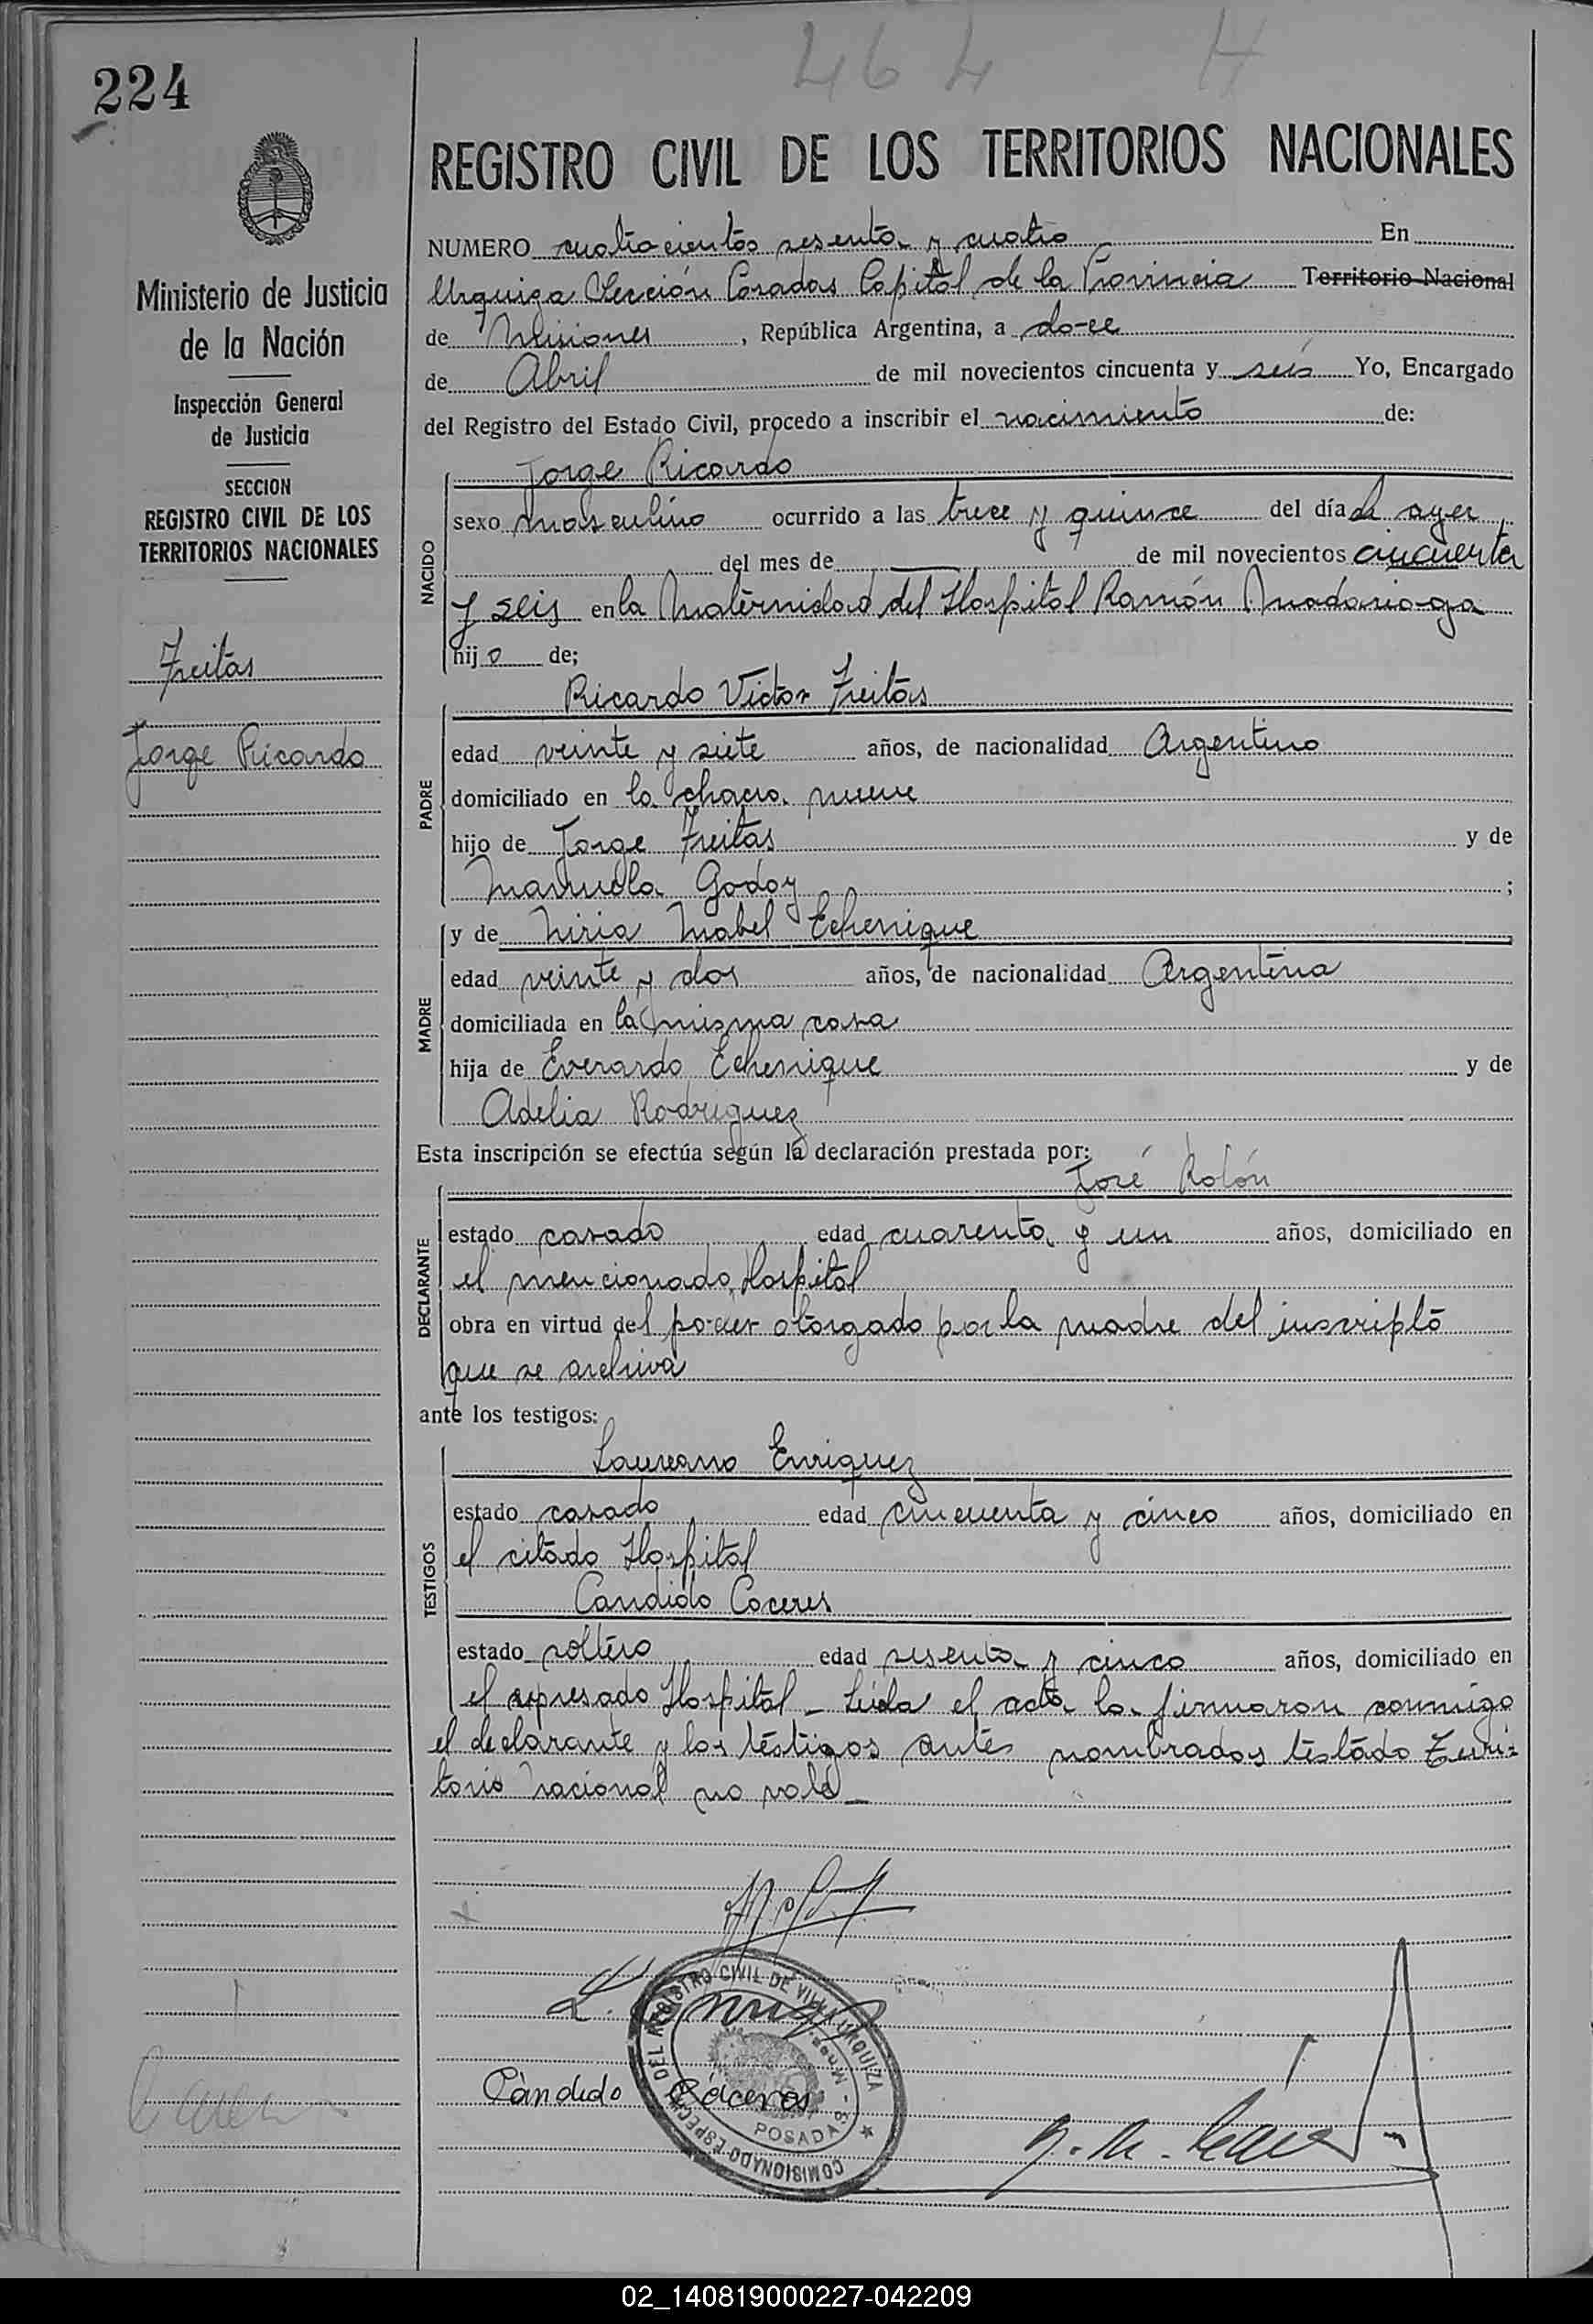 464
224
REGISTRO CIVIL DE LOS TERRITORIOS NACIONALES
Ministerio de Justicia
de la Nación
Inspección General
de Justicia
SECCION
REGISTRO CIVIL DE LOS
TERRITORIOS NACIONALES
Freitas
Jorge Ricardo
NUMERO cuatrocientos sesenta y cuatro En
Urquiza Sección Posadas Capital de la Provincia Territorio Nacional
de Misiones, República Argentina, a do-ce
de Abril de mil novecientos cincuenta y seis Yo, Encargado
del Registro del Estado Civil, procedo a inscribir el nacimiento de:
NACIDO
Jorge Ricardo
sexo masculino ocurrido a las trece y quince del día de ayer
del mes de de mil novecientos cincuenta
y seis en la Maternidad del Hospital Ramón Madariaga
hijo de;
PADRE
Ricardo Victor Freitas
edad veinte y siete años, de nacionalidad Argentino
domiciliado en la chacra nueve
hijo de Jorge Freitas y de
Manuela Godoy ;
MADRE
y de Niria Mabel Echenique
edad veinte y dos años, de nacionalidad Argentina
domiciliada en la misma casa
hija de Everardo Echenique y de
Adelia Rodriguez
Esta inscripción se efectúa según la declaración prestada por:
DECLARANTE
José Rolón
estado casado edad cuarenta y un años, domiciliado en
el mencionado Hospital
obra en virtud del poder otorgado por la madre del inscripto
que se archiva
ante los testigos:
TESTIGOS
Laureano Enriquez
estado casado edad cincuenta y cinco años, domiciliado en
el citado Hospital
Candido Caceres
estado soltero edad sesenta y cinco años, domiciliado en
el expresado Hospital - Leida el acta la firmaron conmigo
el declarante y los testigos antes nombrados testado Terri-
torio Nacional no vale -
Cándido Cáceres
DEL REGISTRO CIVIL DE VILLA URQUIZA
POSADAS - Mnes.
COMISIONADO ESPECIAL
02_140819000227-042209